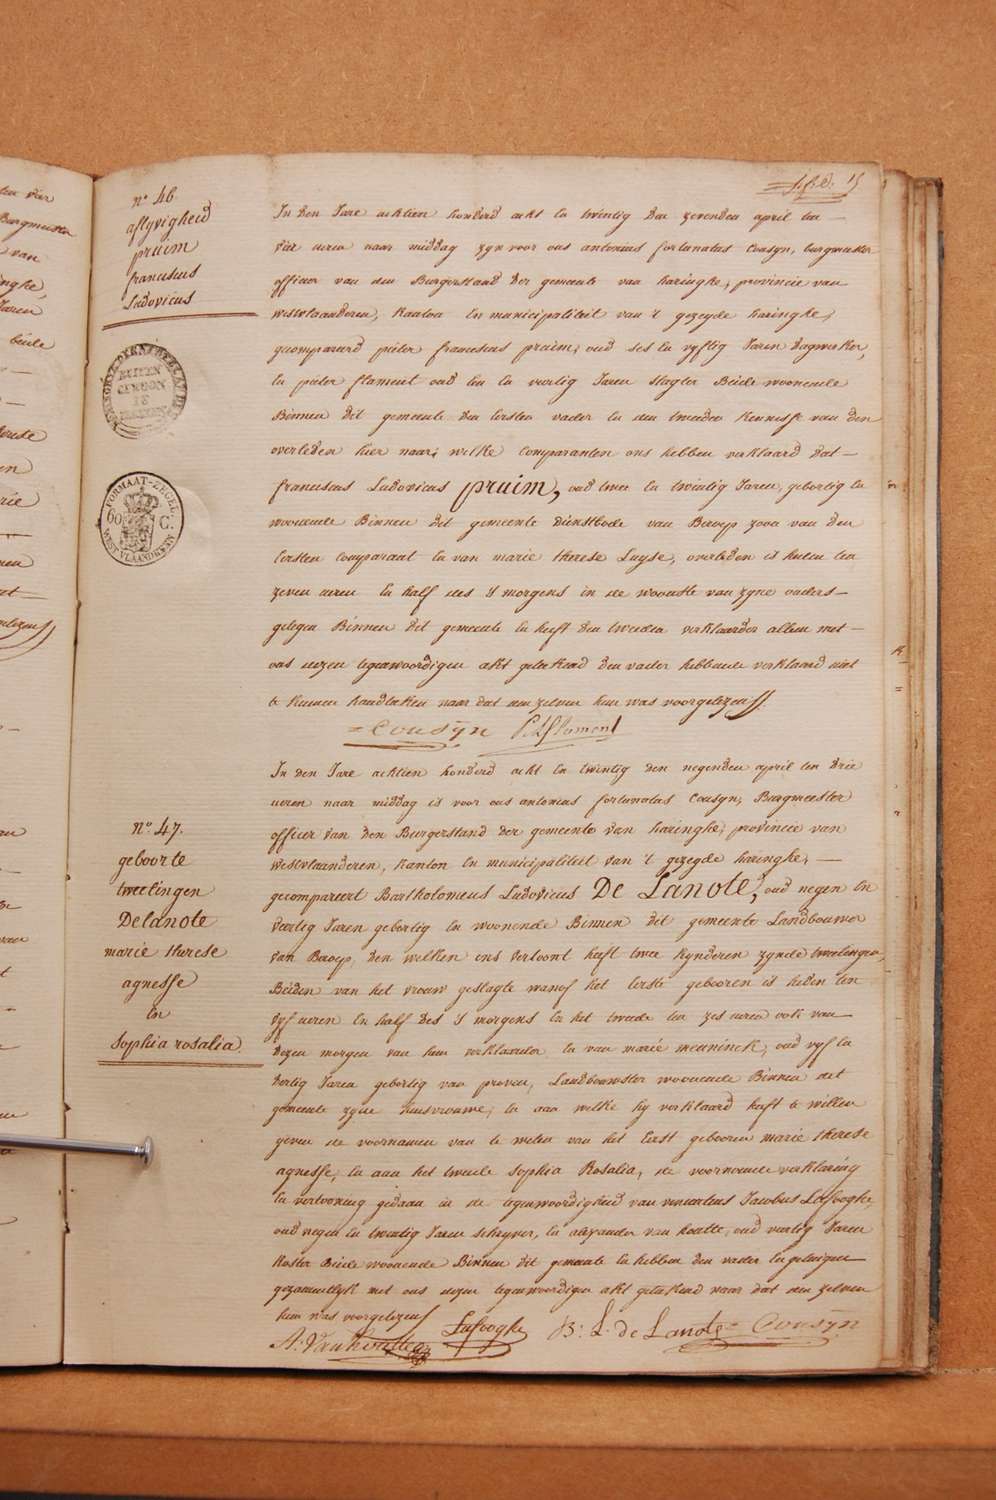 n° 46
aflyvigheid
pruim
franciscus
Ludovicus
BUITEN
60 C.
FORMAAT-ZEGEL
WEST VLAANDEREN
In den Jare achtien honderd acht En twintig den zevenden april ten
vier uren naar middag zyn voor ons antonius fortunatus Cousyn, burgmeester
officier van den Burgerstand der gemeente van haringhe, provincie van
westvlaanderen, Kanton En municipaliteit van 't gezegde haringhe,
gecompareerd pieter franciscus pruim, oud ses En vyftig Jaren dagwerker,
En pieter flament oud En veertig Jaren slagter Beide woonende
Binnen dit gemeente den Eersten vader En den tweeden Kennisse van den
overleden hier naar, welke comparanten ons hebben verklaard dat
franciscus Ludovicus pruim, oud twee En twintig Jaren, gebortig En
woonende Binnen dit gemeente dienstbode van Beroep zoon van den
Eersten Comparant En van marie therese Luyse, overleden is heden ten
zeven uren En half des 's morgens in de woonste van zyne ouders
gelegen Binnen dit gemeente En heeft den tweeden verklaarder alleen met
ons dezen tegenwoordigen akt geteekend den vader hebbende verklaard niet
te kunnen handteeken naar dat den zelven hun was voorgelezen
Cousyn P. Flament
n° 47.
geboorte
tweelingen
Delanote
marie therese
agnesse
En
Sophia rosalia
In den Jare achtien honderd acht En twintig den negenden april ten drie
uren naar middag is voor ons antonius fortunatus Cousyn, Burgmeester
officier van den Burgerstand der gemeente van haringhe, provincie van
westvlaanderen, Kanton En municipaliteit van 't gezegde haringhe,
gecompareert Bartholomeus Ludovicus De Lanote, oud negen En
dertig Jaren gebortig En woonende Binnen dit gemeente Landbouwer
van Beroep, den welken ons vertoont heeft twee kynderen zynde tweelingen,
Beiden van het vrouw geslagte wanof het Eerste gebooren is heden ten
vyf uren En half des 's morgens En het tweede ten zes uren ook van
dezen morgen van hem verklaarder En van marie meuninck, oud vyf En
dertig Jaren gebortig van proven, Landbouwster woonende Binnen dit
gemeente zyne huysvrouwe, En aan welke hy verklaard heeft te willen
geven de voornamen van te weten van het Eerst gebooren marie therese
agnesse, En aan het tweede Sophia Rosalia, de voornoemde verklaring
En vertooning gedaan in de tegenwoordigheid van Jacobus Lafooghe,
oud negen En twintig Jaren schryver, En alexander van houtte, oud veertig Jaren
Koster Beide woonende Binnen dit gemeente En hebben den vader En getuigen
gezamentlyk met ons dezen tegenwoordigen akt geteekend naar dat den zelven
hun was voorgelezen
A. Vanhoutte Lafooghe B: L. de Lanote Cousyn